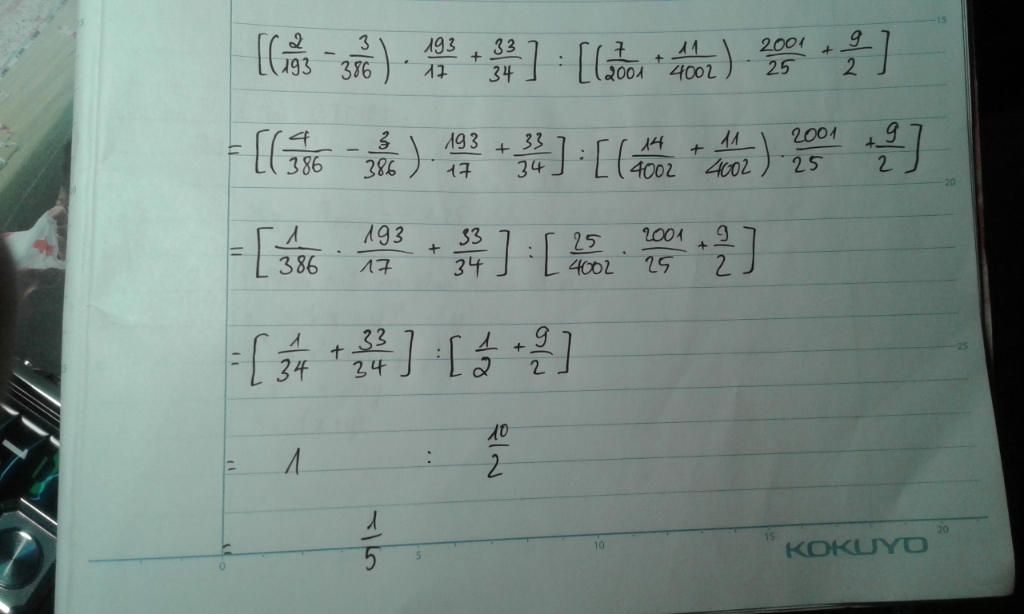 15
[(2/193 - 3/386) · 193/17 + 33/34] : [(7/2001 + 11/4002) · 2001/25 + 9/2]
= [(4/386 - 3/386) · 193/17 + 33/34] : [(14/4002 + 11/4002) · 2001/25 + 9/2]
20
= [1/386 · 193/17 + 33/34] : [25/4002 · 2001/25 + 9/2]
= [1/34 + 33/34] : [1/2 + 9/2]
25
= 1 : 10/2
= 1/5
0 5 10 15 20
KOKUYO